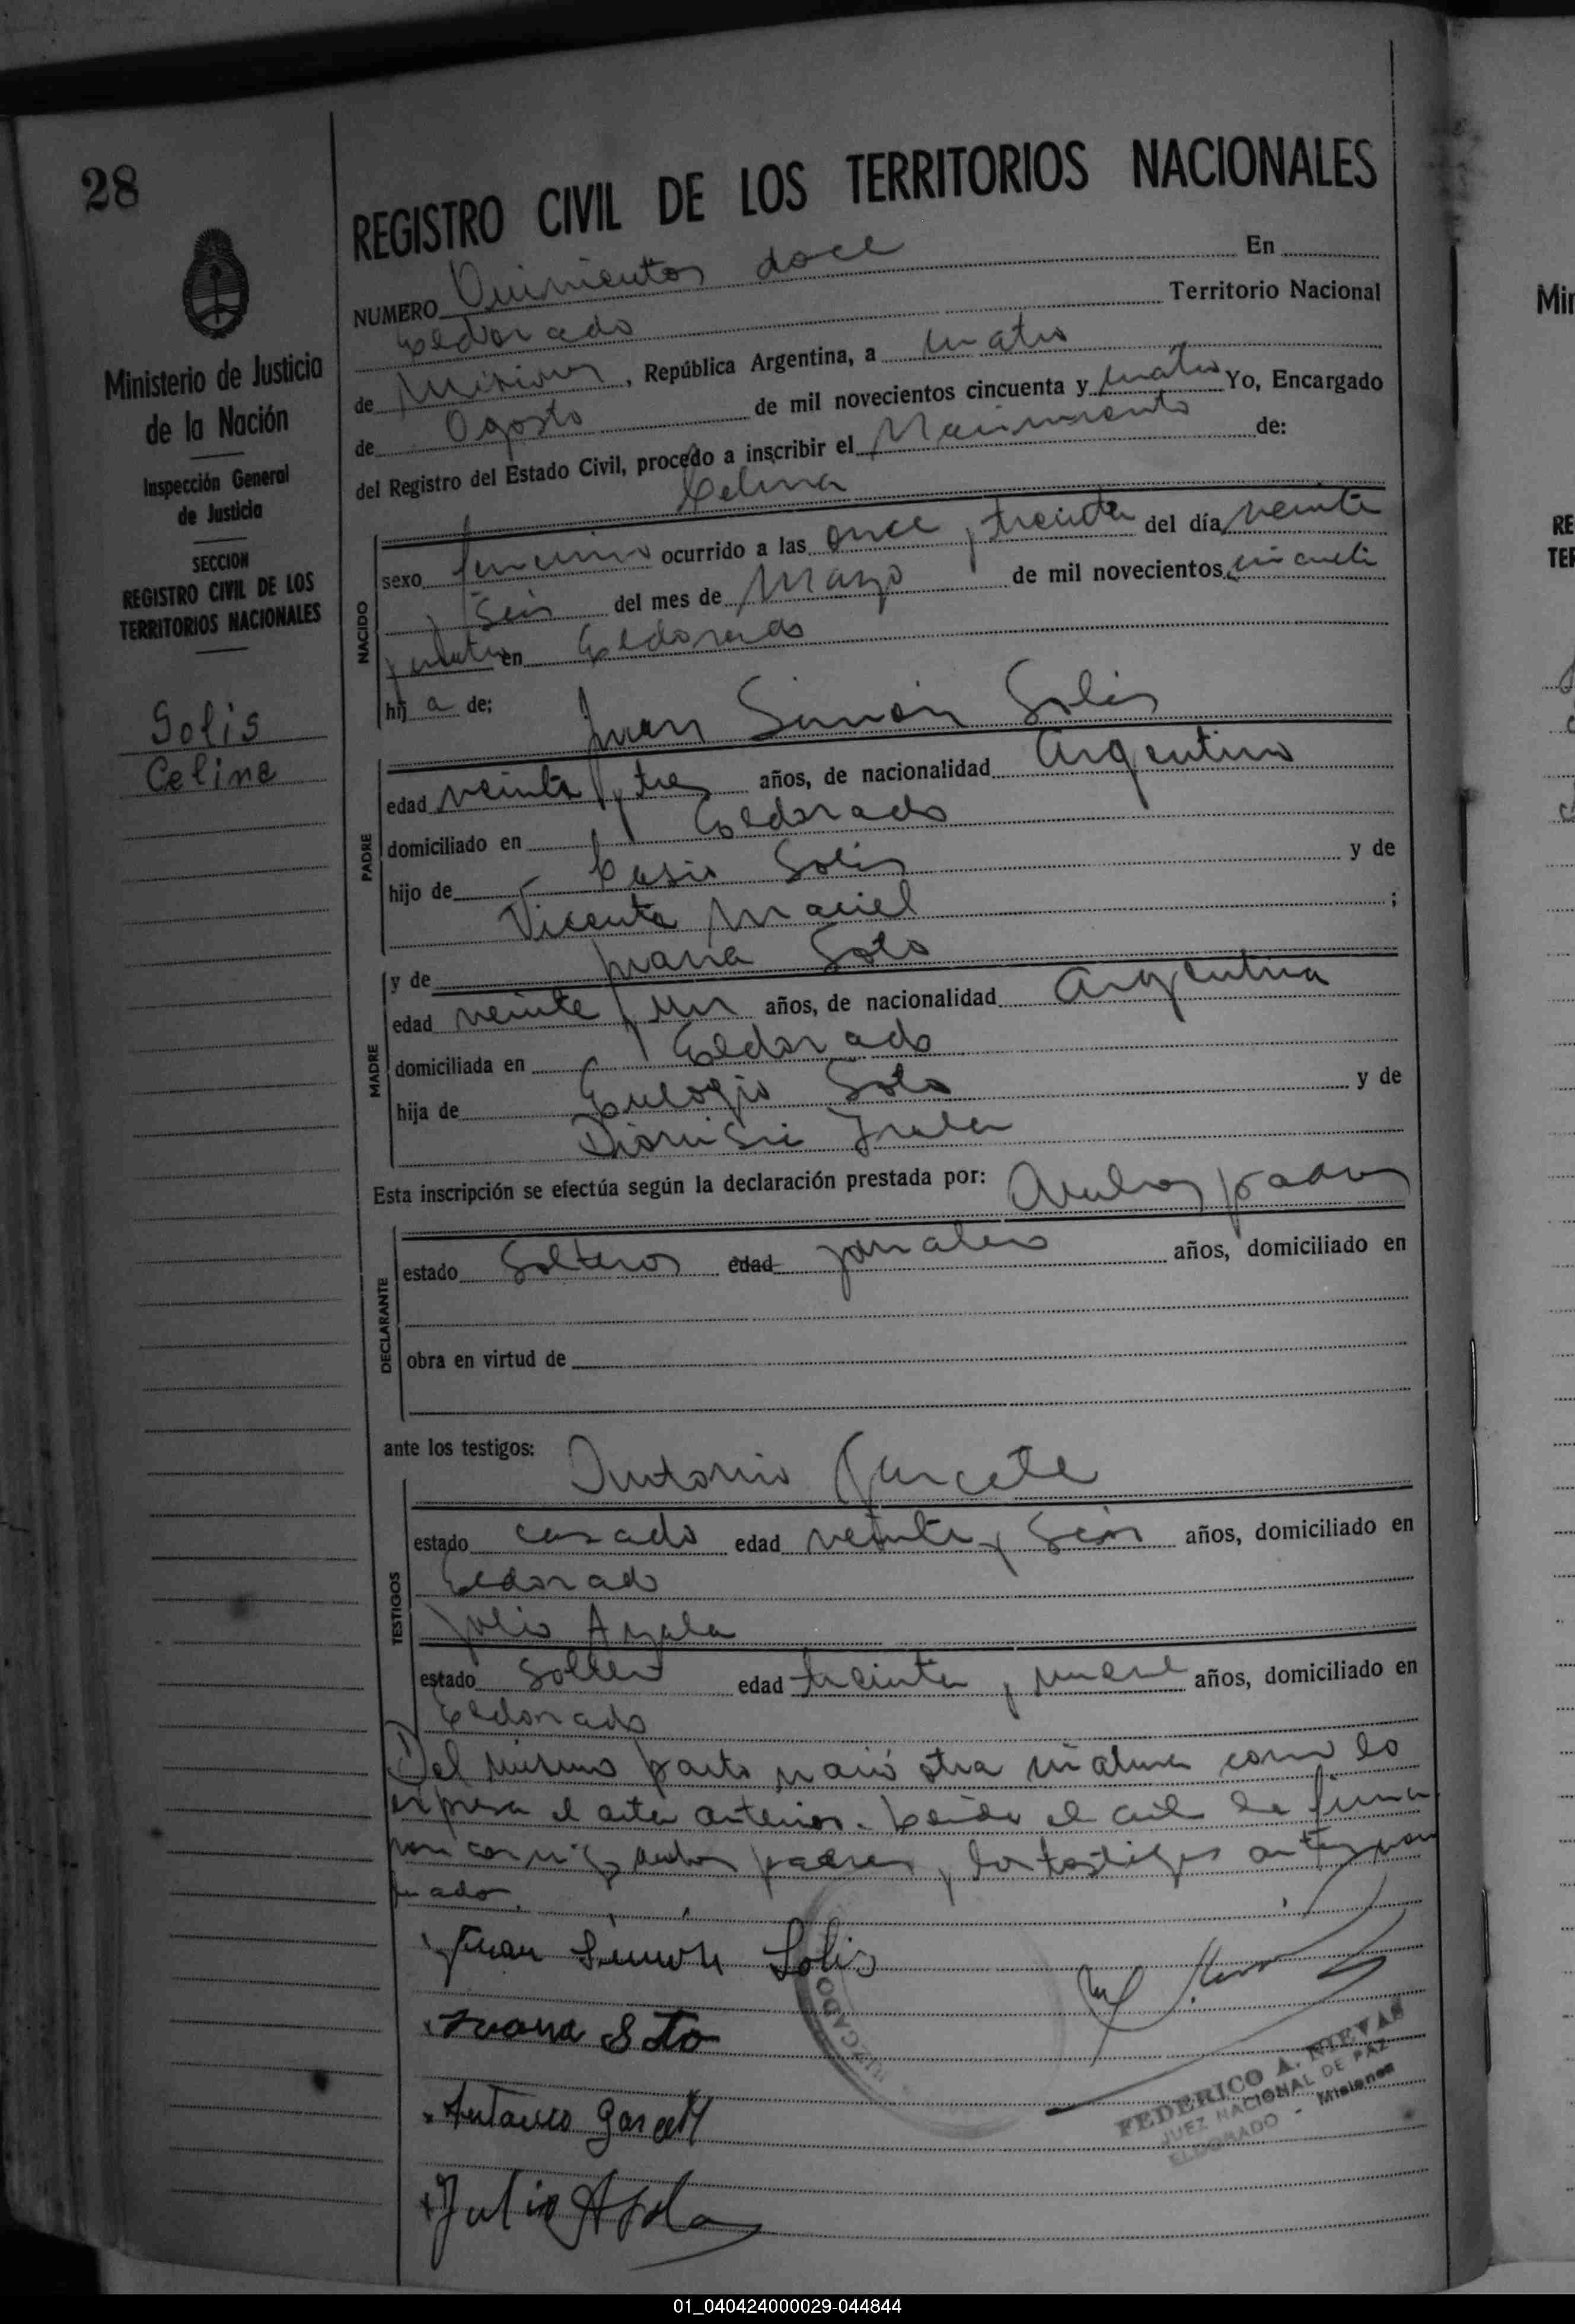 28
REGISTRO CIVIL DE LOS TERRITORIOS NACIONALES
Ministerio de Justicia
de la Nación
Inspección General
de Justicia
SECCION
REGISTRO CIVIL DE LOS
TERRITORIOS NACIONALES
Solis
Celina
NUMERO Quinientos doce En
Eldorado Territorio Nacional
de Misiones, República Argentina, a cuatro
de Agosto de mil novecientos cincuenta y cuatro Yo, Encargado
del Registro del Estado Civil, procedo a inscribir el Nacimiento de:
Celina
NACIDO
sexo femenino ocurrido a las once y treinta del día veinti
seis del mes de Marzo de mil novecientos cincuenta
y cuatro en Eldorado
hij a de:
Juan Simón Solis
PADRE
edad veinte y tres años, de nacionalidad Argentino
domiciliado en Eldorado
hijo de Solis y de
Vicenta Maciel ;
y de Juana Soto
MADRE
edad veinte y un años, de nacionalidad Argentina
domiciliada en Eldorado
hija de Eulogio Soto y de
Dionisia
Esta inscripción se efectúa según la declaración prestada por: Ambos padres
DECLARANTE
estado Solteros edad jornalero años, domiciliado en
obra en virtud de
ante los testigos:
Antonio Garcete
TESTIGOS
estado casado edad veinte y seis años, domiciliado en
Eldorado
Julio Ayala
estado soltero edad treinta y nueve años, domiciliado en
Eldorado
Del mismo parto nació otra criatura como lo
expresa el acta anterior. Leída el acta la firma
ron conmigo ambos padres y los testigos antes nom
brados.
Juan Simón Solis
Juana Soto
Antonio Garcete
Julio Ayala
JUZGADO
FEDERICO A. NIEVAS
JUEZ NACIONAL DE PAZ
ELDORADO - Misiones
Min
RE
TER
01_040424000029-044844